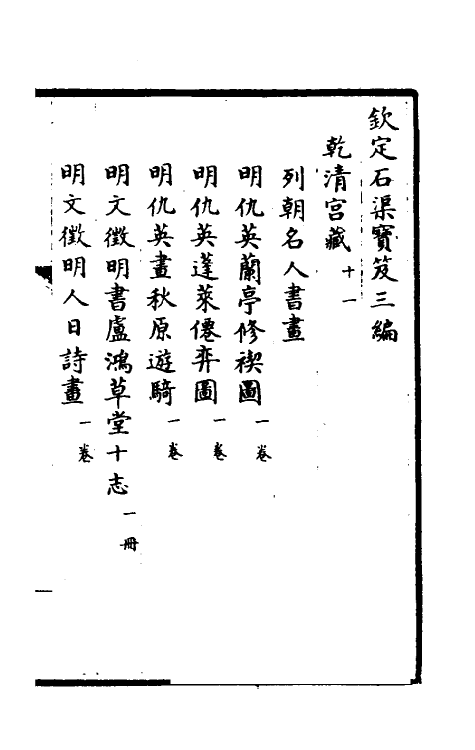 欽定石渠寶笈三編
乾清宮藏十一
列朝名人書畫
明仇英蘭亭修禊圖一卷
明仇英蓬萊僊弈圖一卷
明仇英畫秋原遊騎一卷
明文徵明書盧鴻草堂十志一冊
明文徵明人日詩畫一卷